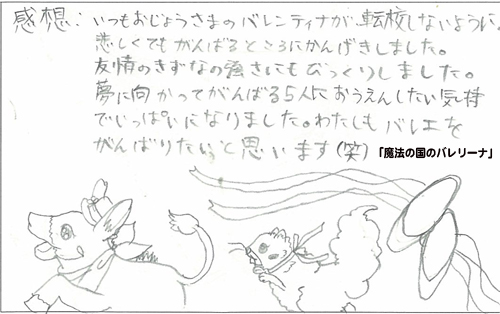 感想:いつもおじょうさまのバレンティナが、転校しないように、
悲しくてもがんばるところにかんげきしました。
友情のきずなの強さにもびっくりしました。
夢に向かってがんばる5人におうえんしたい気持
でいっぱいになりました。わたしもバレエを
がんばりたいと思います(笑)
「魔法の国のバレリーナ」